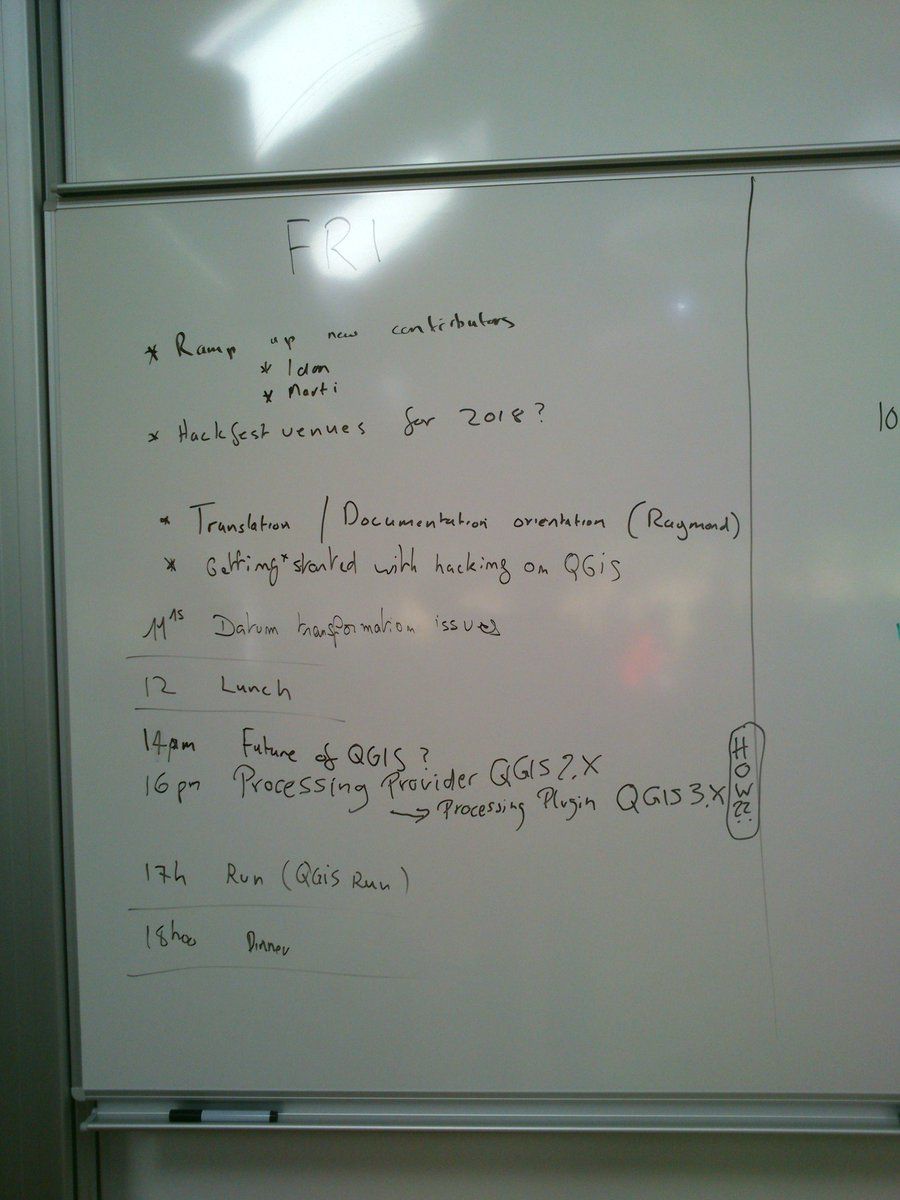 FRI
* Ramp up new contributors
* Idan
* Marti
* Hackfest venues for 2018?
* Translation / Documentation orientation (Raymond)
* Getting* started with hacking on QGIS
11 15 Datum transformation issues
12 Lunch
14pm Future of QGIS?
16pm Processing Provider QGIS 2.X
→ Processing Plugin QGIS 3.X
HOW??
17h Run (QGIS Run)
18h00 Dinner
10